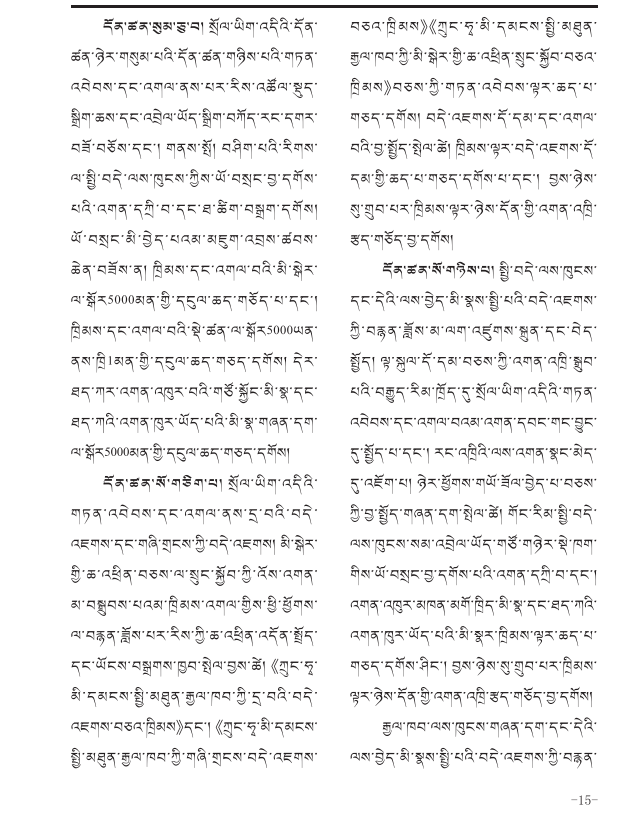 དོན་ཚན་སུམ་ཅུ་པ། སྲོལ་ཡིག་འདིའི་དོན་
ཚན་ཉེར་གསུམ་པའི་དོན་ཚན་གཉིས་པའི་གཏན་
འབེབས་དང་འགལ་ནས་པར་རིས་འཚོལ་སྡུད་
སྒྲིག་ཆས་དང་འབྲེལ་ཡོད་སྒྲིག་བཀོད་རང་དགར་
བཟོ་བཅོས་དང་། གནས་སྤོ། བཤིག་པའི་རིགས་
ལ་སྤྱི་བདེ་ལས་ཁུངས་ཀྱིས་ཡོ་བསྲང་བྱ་དགོས་
པའི་འགན་དཀྲི་བ་དང་ཐ་ཚིག་བསྒྲག་དགོས།
ཡོ་བསྲང་མི་བྱེད་པའམ་མཇུག་འབྲས་ཚབས་
ཆེན་བཟོས་ན། ཁྲིམས་དང་འགལ་བའི་མི་སྒེར་
ལ་སྒོར5000མན་གྱི་དངུལ་ཆད་གཅོད་པ་དང་།
ཁྲིམས་དང་འགལ་བའི་སྡེ་ཚན་ལ་སྒོར5000ཡན་
ནས་ཁྲི1མན་གྱི་དངུལ་ཆད་གཅད་དགོས། དེར་
ཐད་ཀར་འགན་འཁུར་བའི་གཙོ་སྐྱོང་མི་སྣ་དང་
ཐད་ཀའི་འགན་ཁུར་ཡོད་པའི་མི་སྣ་གཞན་དག་
ལ་སྒོར5000མན་གྱི་དངུལ་ཆད་གཅད་དགོས།
དོན་ཚན་སོ་གཅིག་པ། སྲོལ་ཡིག་འདིའི་
གཏན་འབེབས་དང་འགལ་ནས་དྲ་བའི་བདེ་
འཇགས་དང་གཞི་གྲངས་ཀྱི་བདེ་འཇགས། མི་སྒེར་
གྱི་ཆ་འཕྲིན་བཅས་ལ་སྲུང་སྐྱོབ་ཀྱི་འོས་འགན་
མ་བསྒྲུབས་པའམ་ཁྲིམས་འགལ་གྱིས་ཕྱི་ཕྱོགས་
ལ་བརྙན་ཟློས་པར་རིས་ཀྱི་ཆ་འཕྲིན་འདོན་སྤྲོད་
དང་ཡོངས་བསྒྲགས་ཁྱབ་སྤེལ་བྱས་ཚེ།《ཀྲུང་ཧྭ་
མི་དམངས་སྤྱི་མཐུན་རྒྱལ་ཁབ་ཀྱི་དྲ་བའི་བདེ་
འཇགས་བཅའ་ཁྲིམས》དང་།《ཀྲུང་ཧྭ་མི་དམངས་
སྤྱི་མཐུན་རྒྱལ་ཁབ་ཀྱི་གཞི་གྲངས་བདེ་འཇགས་
བཅའ་ཁྲིམས》《ཀྲུང་ཧྭ་མི་དམངས་སྤྱི་མཐུན་
རྒྱལ་ཁབ་ཀྱི་མི་སྒེར་གྱི་ཆ་འཕྲིན་སྲུང་སྐྱོབ་བཅའ་
ཁྲིམས》བཅས་ཀྱི་གཏན་འབེབས་ལྟར་ཆད་པ་
གཅད་དགོས། བདེ་འཇགས་དོ་དམ་དང་འགལ་
བའི་བྱ་སྤྱོད་སྤེལ་ཚེ། ཁྲིམས་ལྟར་བདེ་འཇགས་དོ་
དམ་གྱི་ཆད་པ་གཅད་དགོས་པ་དང་། བྱས་ཉེས་
སུ་གྲུབ་པར་ཁྲིམས་ལྟར་ཉེས་དོན་གྱི་འགན་འཁྲི་
རྩད་གཅོད་བྱ་དགོས།
དོན་ཚན་སོ་གཉིས་པ། སྤྱི་བདེ་ལས་ཁུངས་
དང་དེའི་ལས་བྱེད་མི་སྣས་སྤྱི་པའི་བདེ་འཇགས་
ཀྱི་བརྙན་ཟློས་མ་ལག་འཛུགས་སྐྲུན་དང་བེད་
སྤྱོད། ལྟ་སྐུལ་དོ་དམ་བཅས་ཀྱི་འགན་འཁྲི་སྒྲུབ་
པའི་བརྒྱུད་རིམ་ཁྲོད་དུ་སྲོལ་ཡིག་འདིའི་གཏན་
འབེབས་དང་འགལ་བའམ་འགན་དབང་གང་བྱུང་
དུ་སྤྱོད་པ་དང་། རང་འཁྲིའི་ལས་འགན་སྣང་མེད་
དུ་འཇོག་པ། ཉེར་ཕྱོགས་གཡོ་ཟོལ་བྱེད་པ་བཅས་
ཀྱི་བྱ་སྤྱོད་གཞན་དག་སྤེལ་ཚེ། གོང་རིམ་སྤྱི་བདེ་
ལས་ཁུངས་སམ་འབྲེལ་ཡོད་གཙོ་གཉེར་སྡེ་ཁག་
གིས་ཡོ་བསྲང་བྱ་དགོས་པའི་འགན་དཀྲི་བ་དང་།
འགན་འཁུར་མཁན་མགོ་ཁྲིད་མི་སྣ་དང་ཐད་ཀའི་
འགན་ཁུར་ཡོད་པའི་མི་སྣར་ཁྲིམས་ལྟར་ཆད་པ་
གཅད་དགོས་ཤིང་། བྱས་ཉེས་སུ་གྲུབ་པར་ཁྲིམས་
ལྟར་ཉེས་དོན་གྱི་འགན་འཁྲི་རྩད་གཅོད་བྱ་དགོས།
རྒྱལ་ཁབ་ལས་ཁུངས་གཞན་དག་དང་དེའི་
ལས་བྱེད་མི་སྣས་སྤྱི་པའི་བདེ་འཇགས་ཀྱི་བརྙན་
-15-